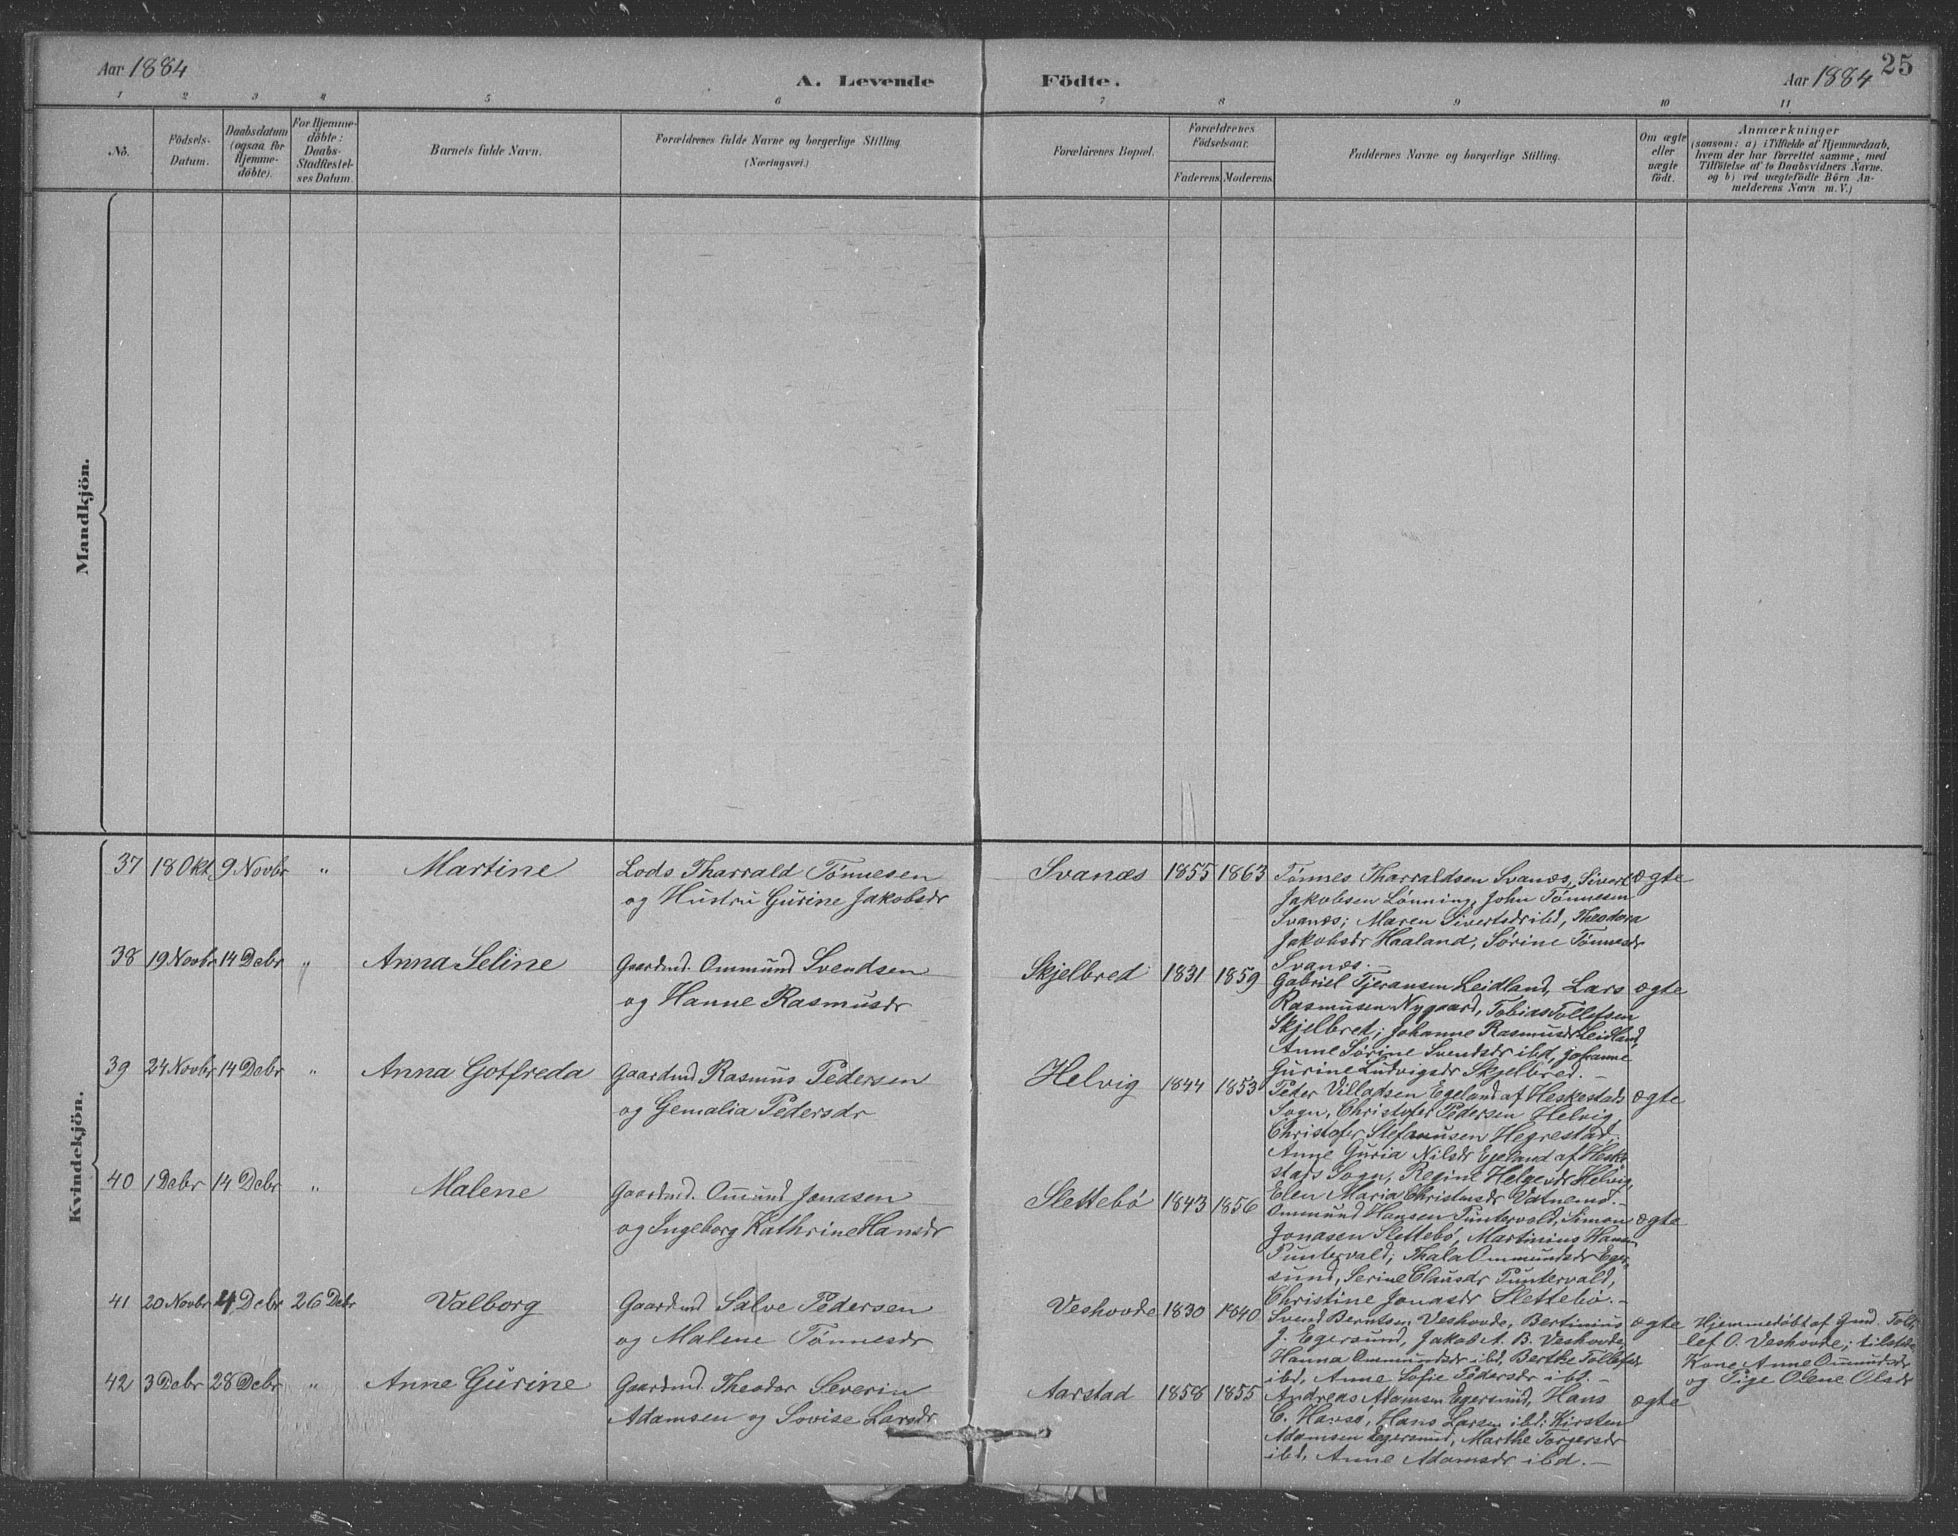 Aar 1884
A. Levende Födte.
Aar 1884
25
1 2 3 4 5 6 7 8 9 10 11
No.
Födsels-
Datum.
Daabsdatum
(ogsaa for
Hjemme-
döbte).
For Hjemme-
döbte:
Daabs-
Stadfæstel-
ses Datum.
Barnets fulde Navn.
Forældrenes fulde Navne og borgerlige Stilling
(Næringsvei.)
Forælárenes Bopæl.
Forældrenes
Födselsaar.
Faderens. Moderens.
Faddernes Navne og borgerlige Stilling.
Om ægte
eller
uægte
födt.
Anmærkninger
(saasom: a) i Tilfælde af Hjemmedaab,
hvem der har forrettet samme, med
Tilföielse af to Daabsvidners Navne.
og b) ved uægtefödte Börn An-
melderens Navn m. V.)
Mandkjön.
Kvindekjön.
37 18 Okt 9 Novbr " Martine
Lods Tharrald Tønnesen
og Hustru Gurine Jakobsdr
Svanæs 1855 1863
Tønnes Tharraldsen Svanæs, Sivert
Jakobsen Lønning, John Tønnesen
Svanæs; Maren Sivertsdr ibd, Theodora
Jakobsdr Haaland, Sørine Tønnesdr
Svanæs.—
ægte
38 19 Novbr 14 Debr " Anna Seline
Gaardmd. Ommund Svendsen
og Hanne Rasmusdr
Skjelbred 1831 1859
Gabriel Tjeransen Leidland, Lars
Rasmusen Nygaard, Tobias Tollefsen
Skjelbred; Johanne Rasmusdr Leidland,
Anne Sørine Svendsdr ibd, Johanne
Gurine Ludvigsdr Skjelbred.—
ægte
39 24 Novbr 14 Debr " Anna Gotfreda
Gaardmd Rasmus Pedersen
og Gemalia Pedersdr
Helvig 1844 1853
Peder Villadsen Egeland af Heskestads
Sogn, Christofer Pedersen Helvig,
Christofer Stefanusen Hegrestad;
Anne Guria Nilsdr Egeland af Heske-
stads Sogn, Regine Helgesdr Helvig,
Elen Maria Christensdr Vatnemo.—
ægte
40 1 Debr 14 Debr " Malene
Gaardmd. Omund Jonasen
og Ingeborg Kathrine Hansdr
Slettebø 1843 1856
Ommund Hansen Puntervold, Simon
Jonasen Slettebø, Martinius Hansen
Puntervald; Thala Ommundsdr Eger-
sund, Serine Clausdr Puntervald,
Christine Jonasdr Slettebø.—
ægte
41 20 Novbr 4 Debr 26 Debr Valborg
Gaardmd Salve Pedersen
og Malene Tønnesdr
Veshovde 1830 1840
Svend Berntsen, Veshovde, Bertinius
J. Egersund, Jakob A. B. Veshovde,
Hanna Ommundsdr ibd, Berthe Tollefsdr
ibd, Anne Sofie Pedersdr ibd.—
ægte
Hjemmedøbt af Gmd. Toll-
lef O. Veshovde; tilstede
Kone Anne Ommundsdr
og Pige Olene Olsdr
42 3 Debr 28 Debr " Anne Gurine
Gaardmd. Theodor Severin
Adamsen og Lovise Larsdr
Aarstad 1858 1855
Andreas Adamsen Egersund, Hans
C. Hansø, Hans Larsen ibd; Kirsten
Adamsen Egersund, Marthe Torgersdr
ibd, Anne Adamsdr ibd.—
ægte